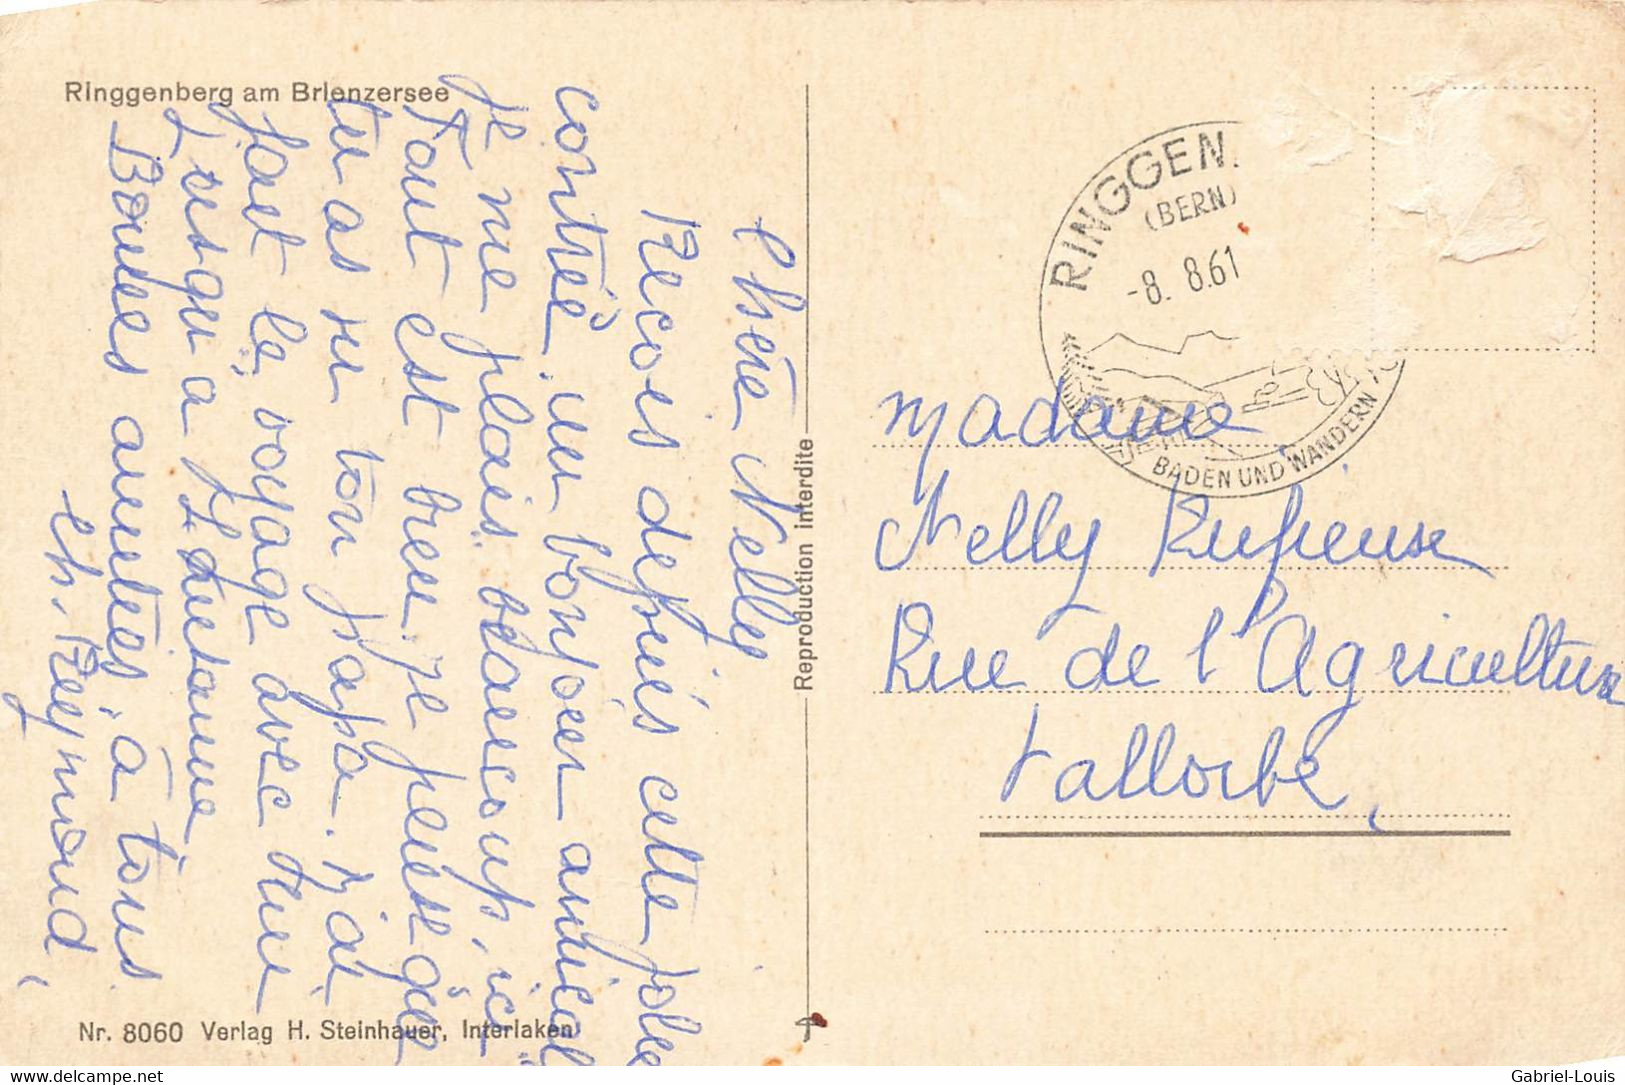 Ringgenberg am Brienzersee
Chère Nelly
Recois depuis cette jolie
contrée un bonjour amical
je me plais beaucoup, ici
Tout est beau. je pense que
tu as vu ton papa. J'ai
fait le voyage avec
Lusqu'a Lausanne
Bonnes amitiés, à tous
Ch. Reymond,
Nr. 8060 Verlag H. Steinhauer, Interlaken
Reproduction interdite
RINGGEN.
(BERN)
-8. 8.61
BADEN UND WANDERN
Madame
Nelly
Rue de l'Agriculture
Vallorbe,
delcampe.net
Gabriel-Louis